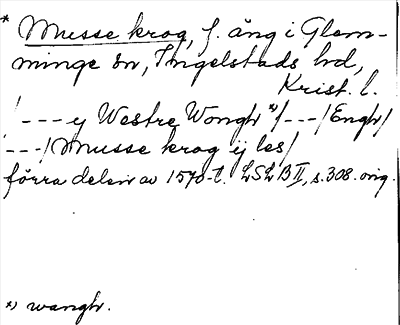 * Musse krog, f. äng i Glem-
minge sn, Ingelstads hd,
Krist. l.
/---y Westre Wongh *)/---/Engh/
/---/Musse krog ij les/
förra delen av 1570-t. LSLB II, s. 308. orig.
*) wangh.